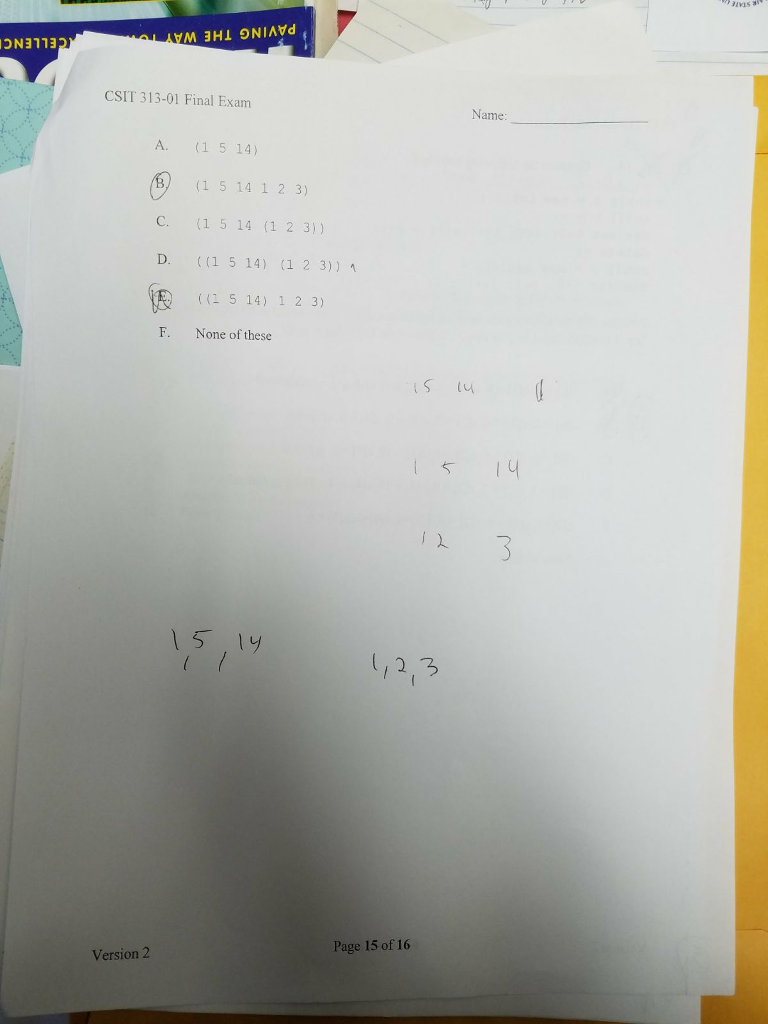 PAVING THE WAY TOW
CELLENC
CSIT 313-01 Final Exam
Name:
A. (1 5 14)
B. (1 5 14 1 2 3)
C. (1 5 14 (1 2 3))
D. ((1 5 14) (1 2 3))
E. ((1 5 14) 1 2 3)
F. None of these
15 14
1 5 14
12 3
1, 5, 14
1, 2, 3
Version 2
Page 15 of 16